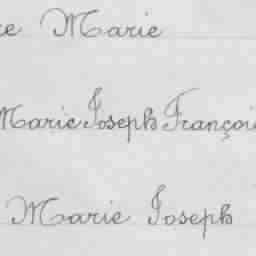 re Marie
Marie Joseph Françoi
Marie Joseph